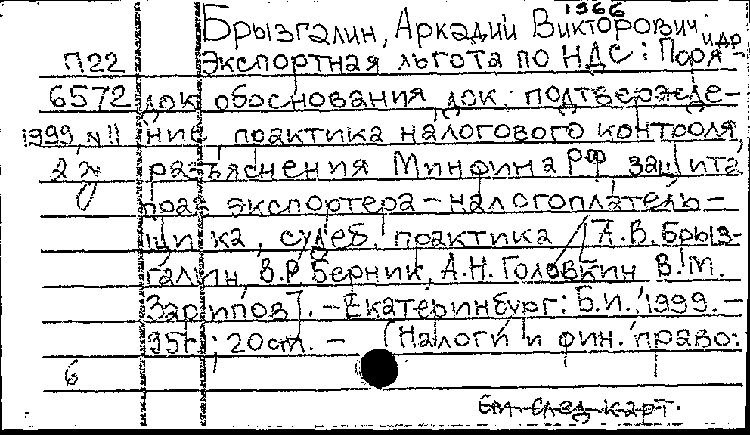 1966
Брызгалин, Аркадий Викторович и др.
П22 Экспортная льгота по НДС: Поря-
6572 док обоснования, док. подтвержде-
1999, N 11 ние, практика налогового контроля,
2 э разъяснения Минфина РФ защита
прав экспортера-налогоплатель-
щика, судеб. практика / [А.В. Брыз-
галин, В.Р Берник, А.Н. Головкин В.М.
Зарипов]. - Екатеринбург: Б.И., 1999. -
95 с; 20 см. - (Налоги и фин. право:
6
См. след карт.